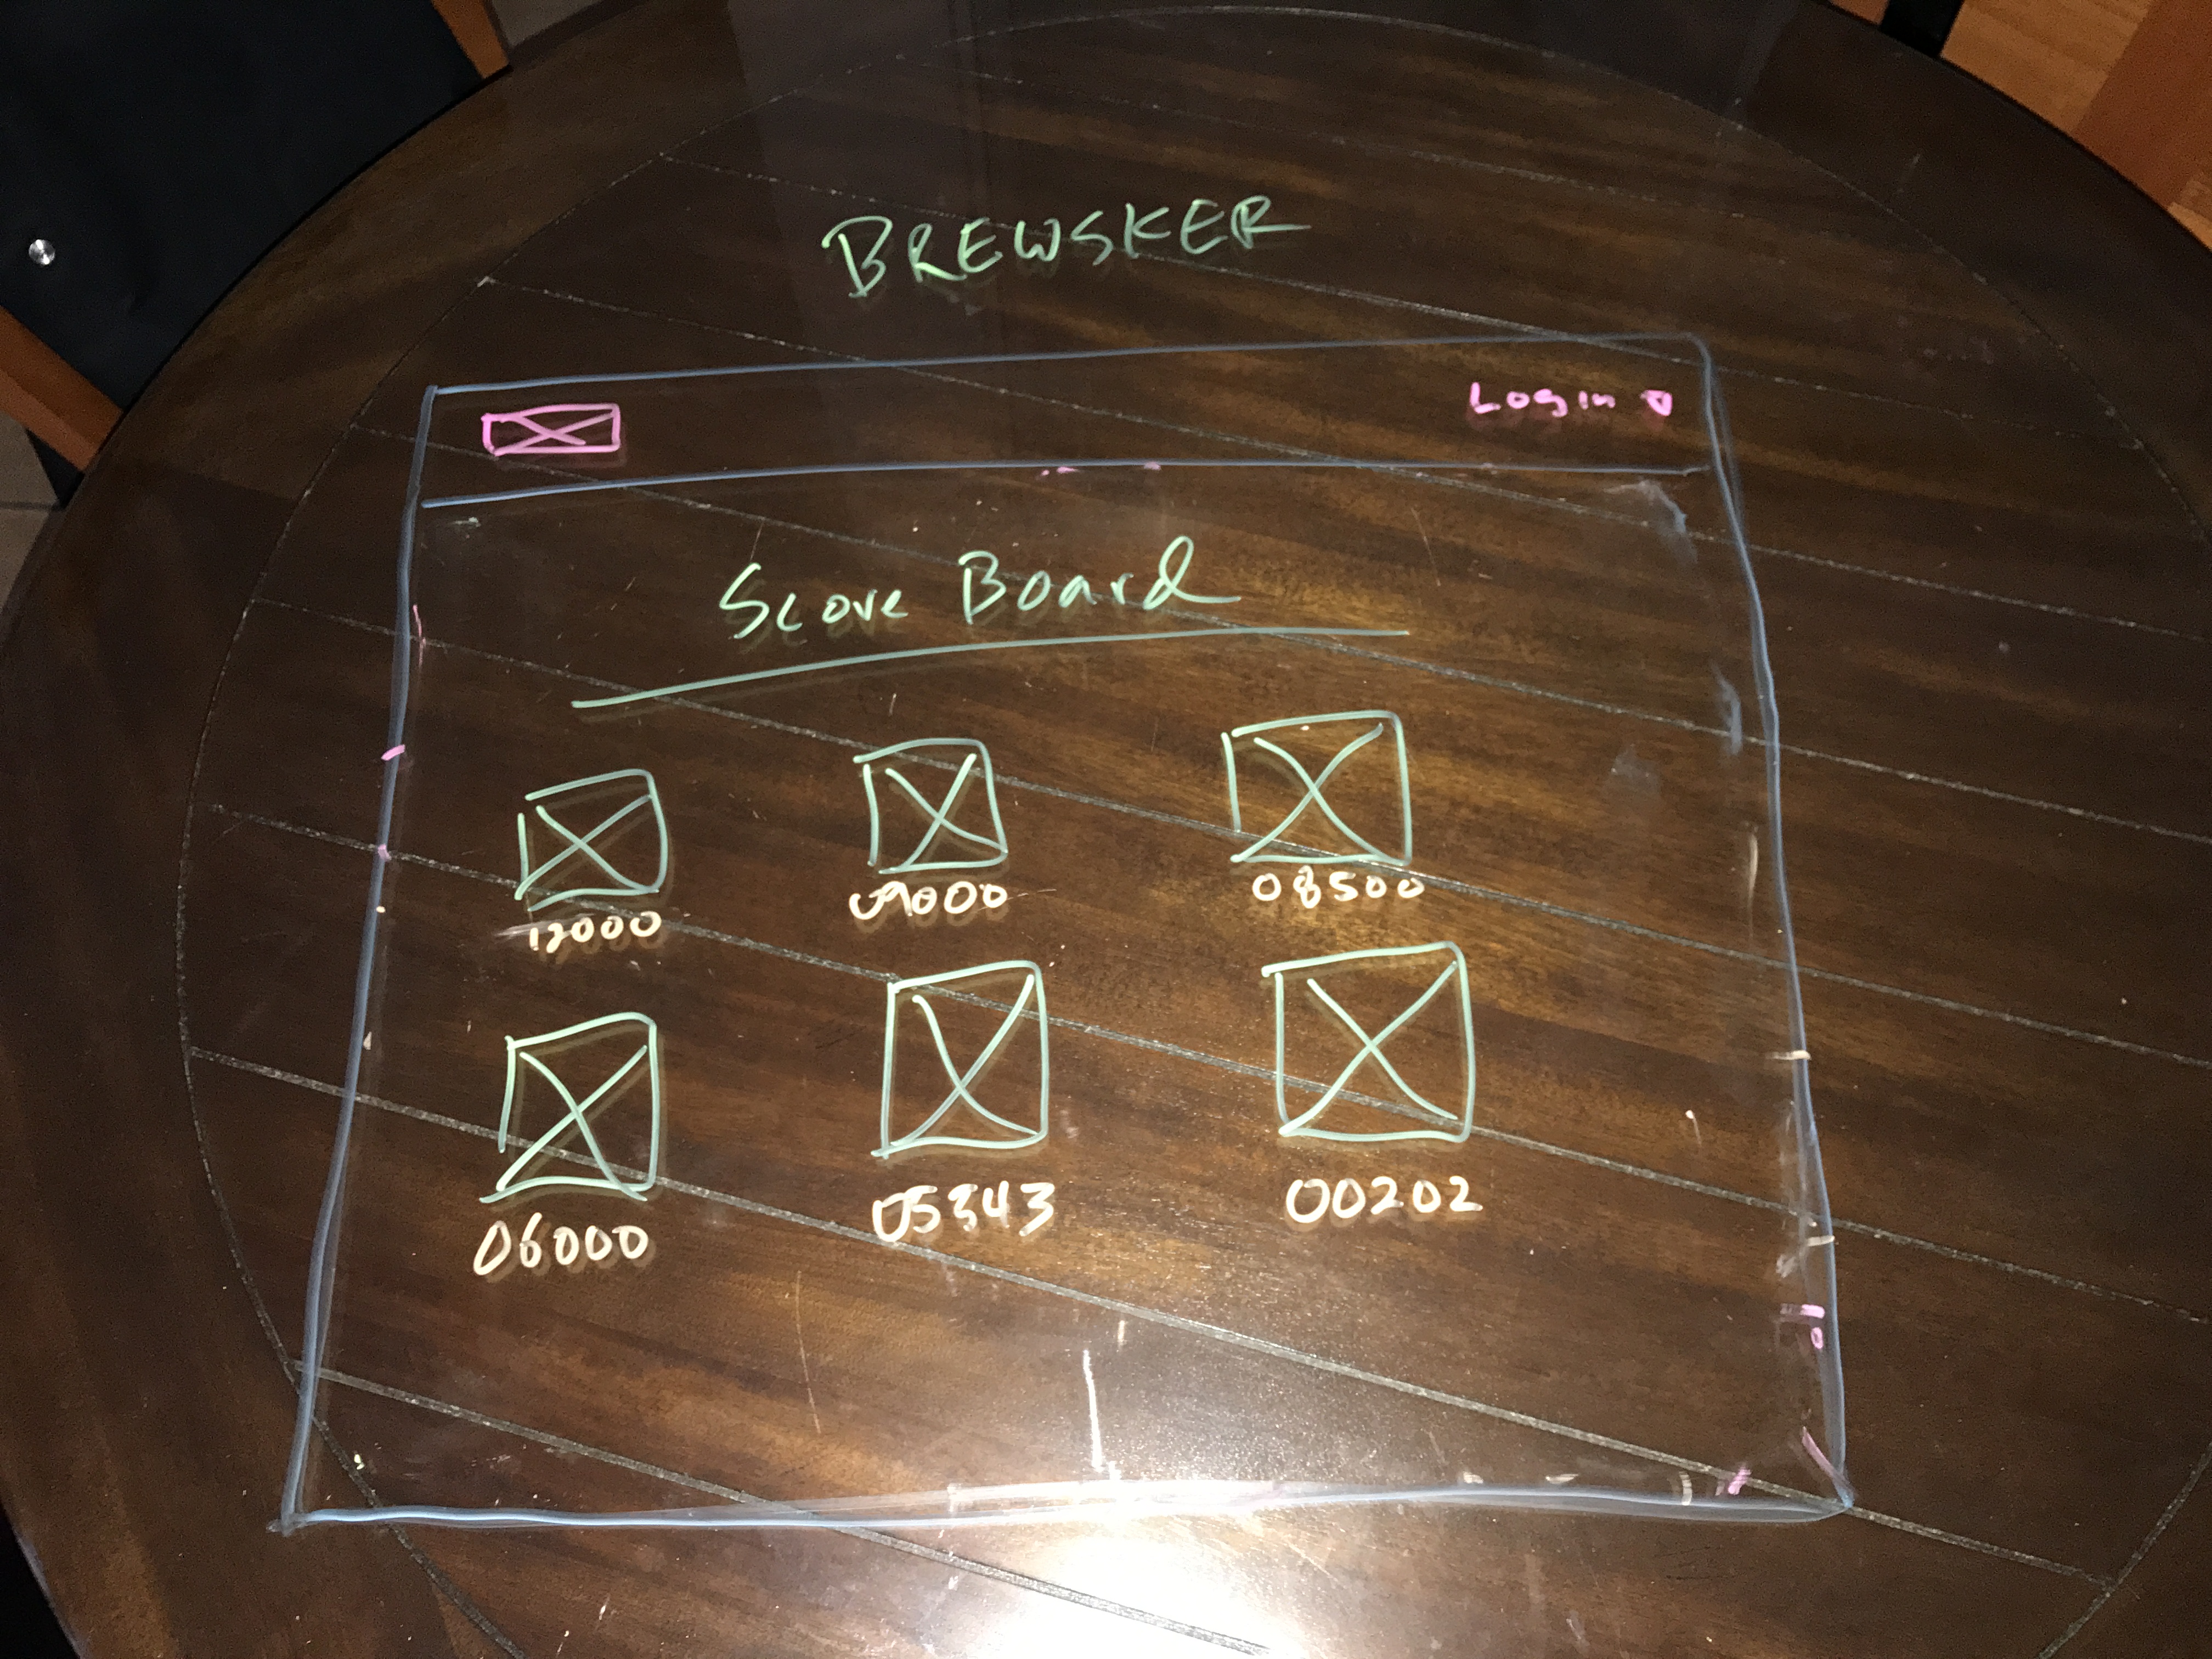 BREWSKER
Login
Score Board
12000 09000 08500
06000 05343 00202